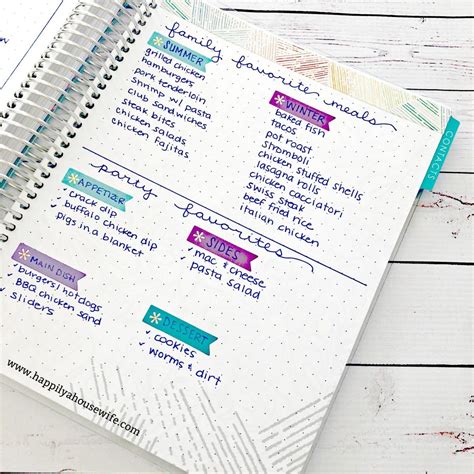 family favorite meals
SUMMER
grilled chicken
hamburgers
pork tenderloin
shrimp w/ pasta
club sandwiches
steak bites
chicken salads
chicken fajitas
WINTER
baked fish
tacos
pot roast
stromboli
chicken stuffed shells
lasagna rolls
chicken cacciatori
swiss steak
beef fried rice
italian chicken
CONTACTS
party favorites
APPETIZER
crack dip
buffalo chicken dip
pigs in a blanket
SIDES
mac & cheese
pasta salad
MAIN DISH
burgers/hotdogs
BBQ chicken sand
sliders
DESSERT
cookies
worms & dirt
www.happilyahousewife.com